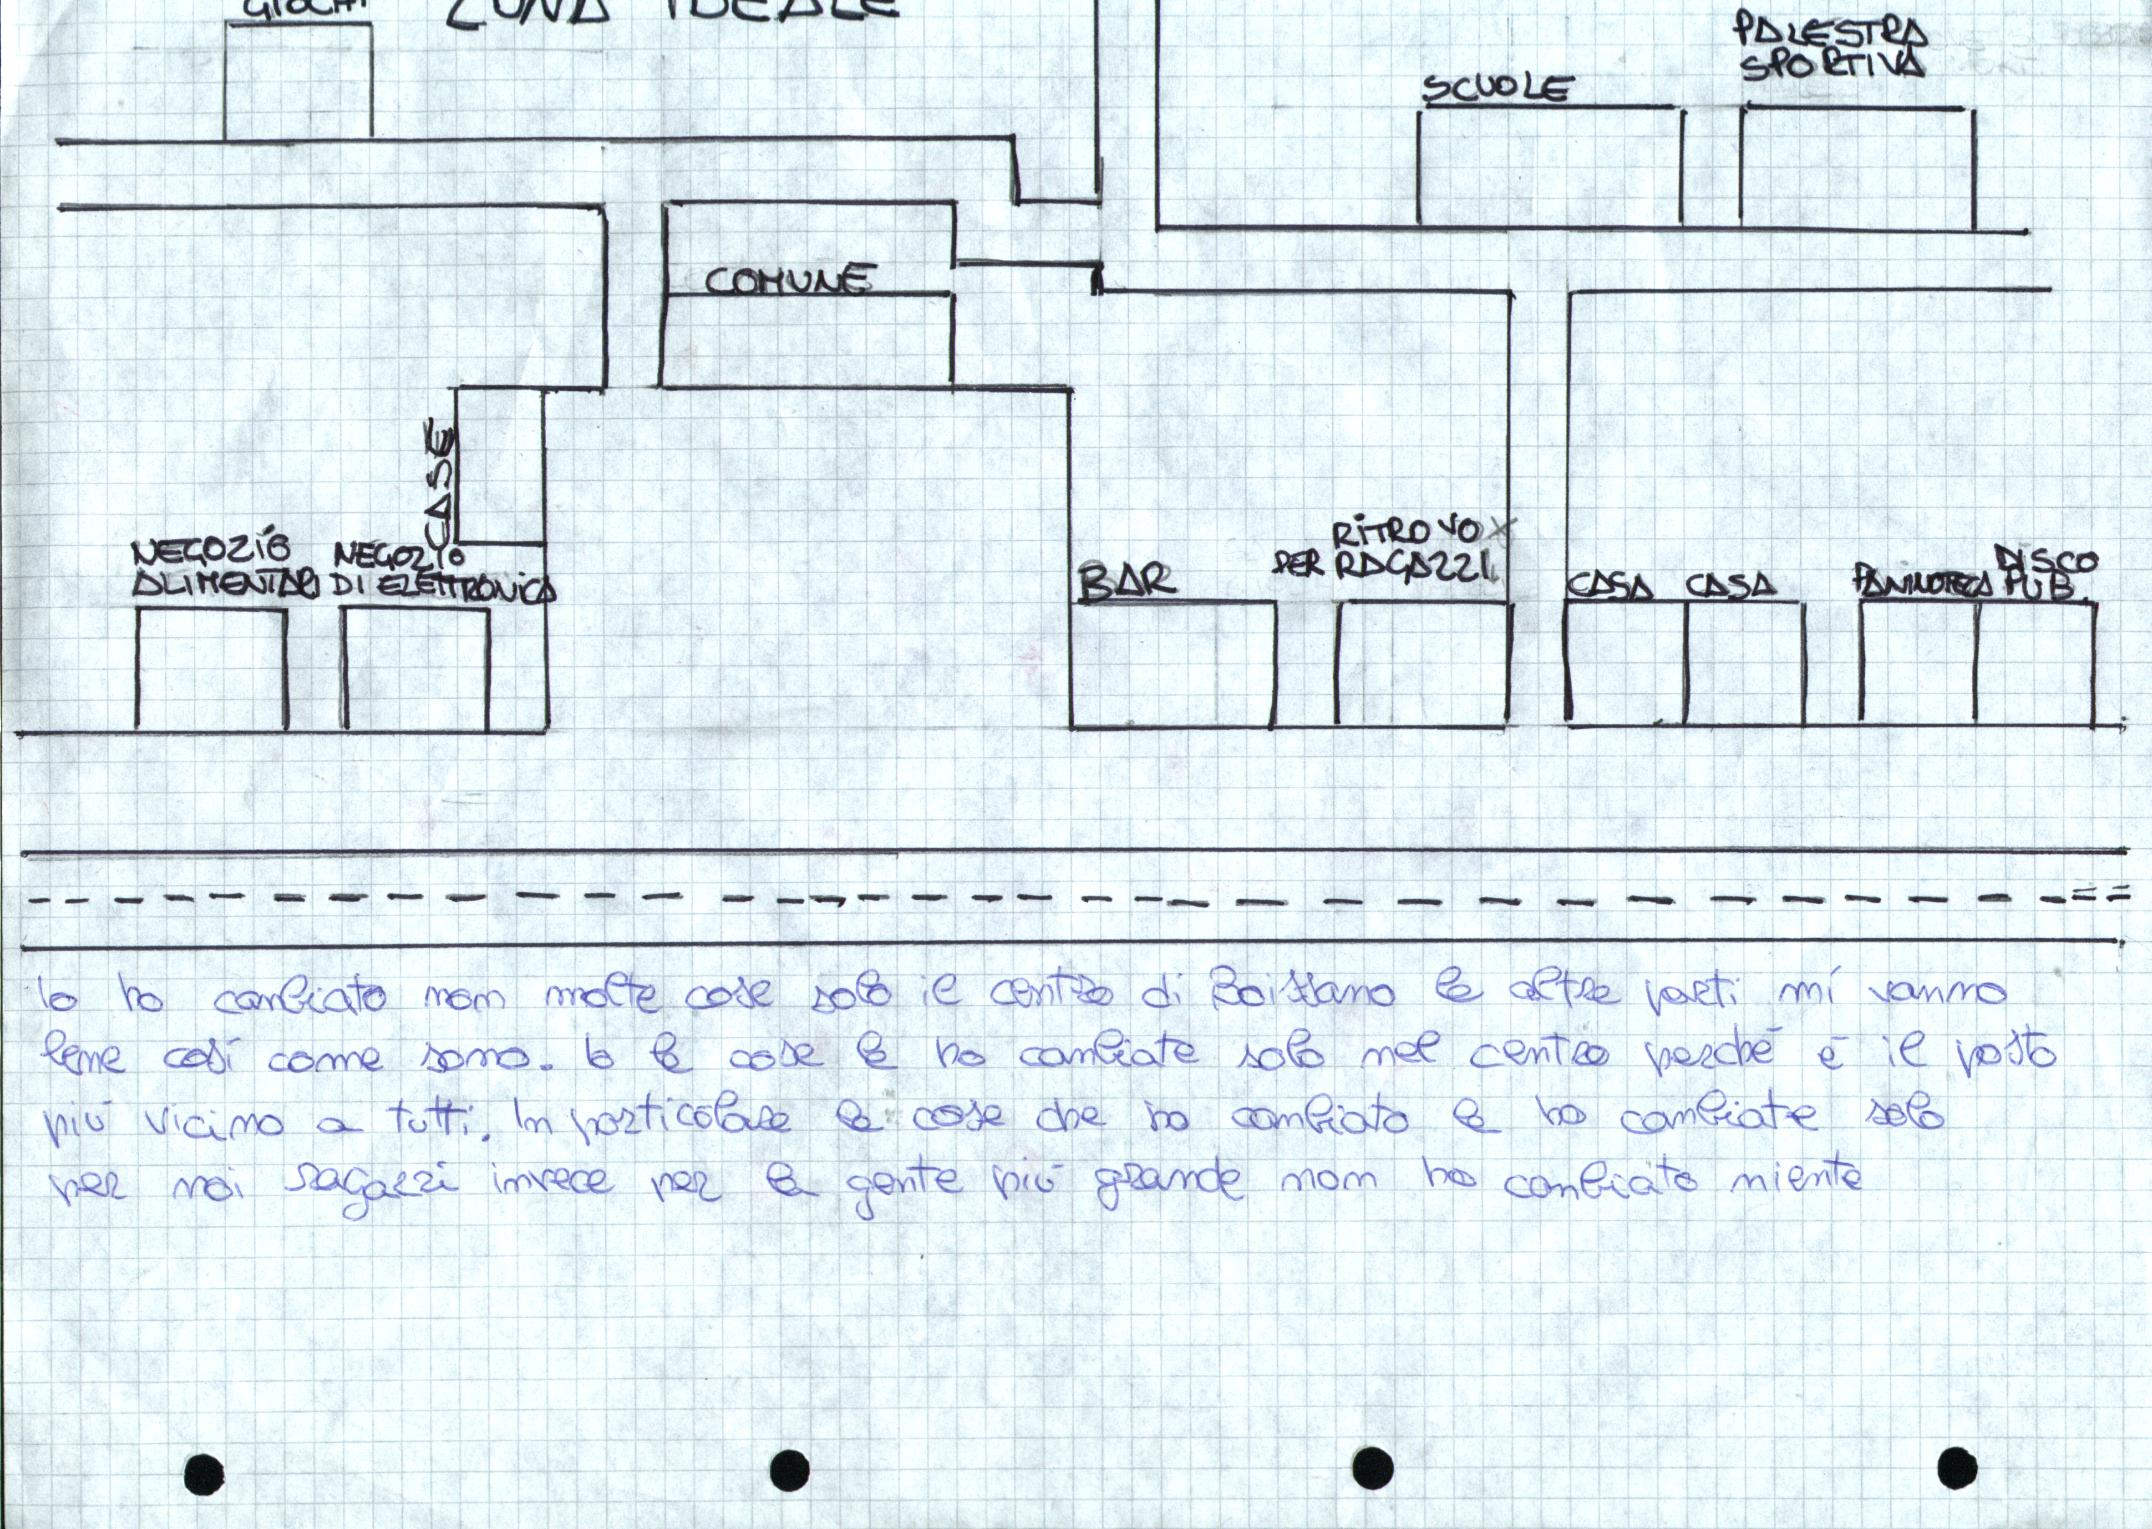 GIOCHI
ZONA IDEALE
PALESTRA
SPORTIVA
SCUOLE
COMUNE
CASE
NEGOZIO
ALIMENTARI
NEGOZIO
DI ELETTRONICA
BAR
RITROVO
PER RAGAZZI
CASA
CASA
PANINOTECA
DISCO
PUB.
Io ho cambiato non molte cose solo il centro di Boissano le altre parti mi vanno
bene così come sono. Io le cose le ho cambiate solo nel centro perché è il posto
più vicino a tutti. In particolare le cose che ho cambiato le ho cambiate solo
per noi ragazzi invece per la gente più grande non ho cambiato niente